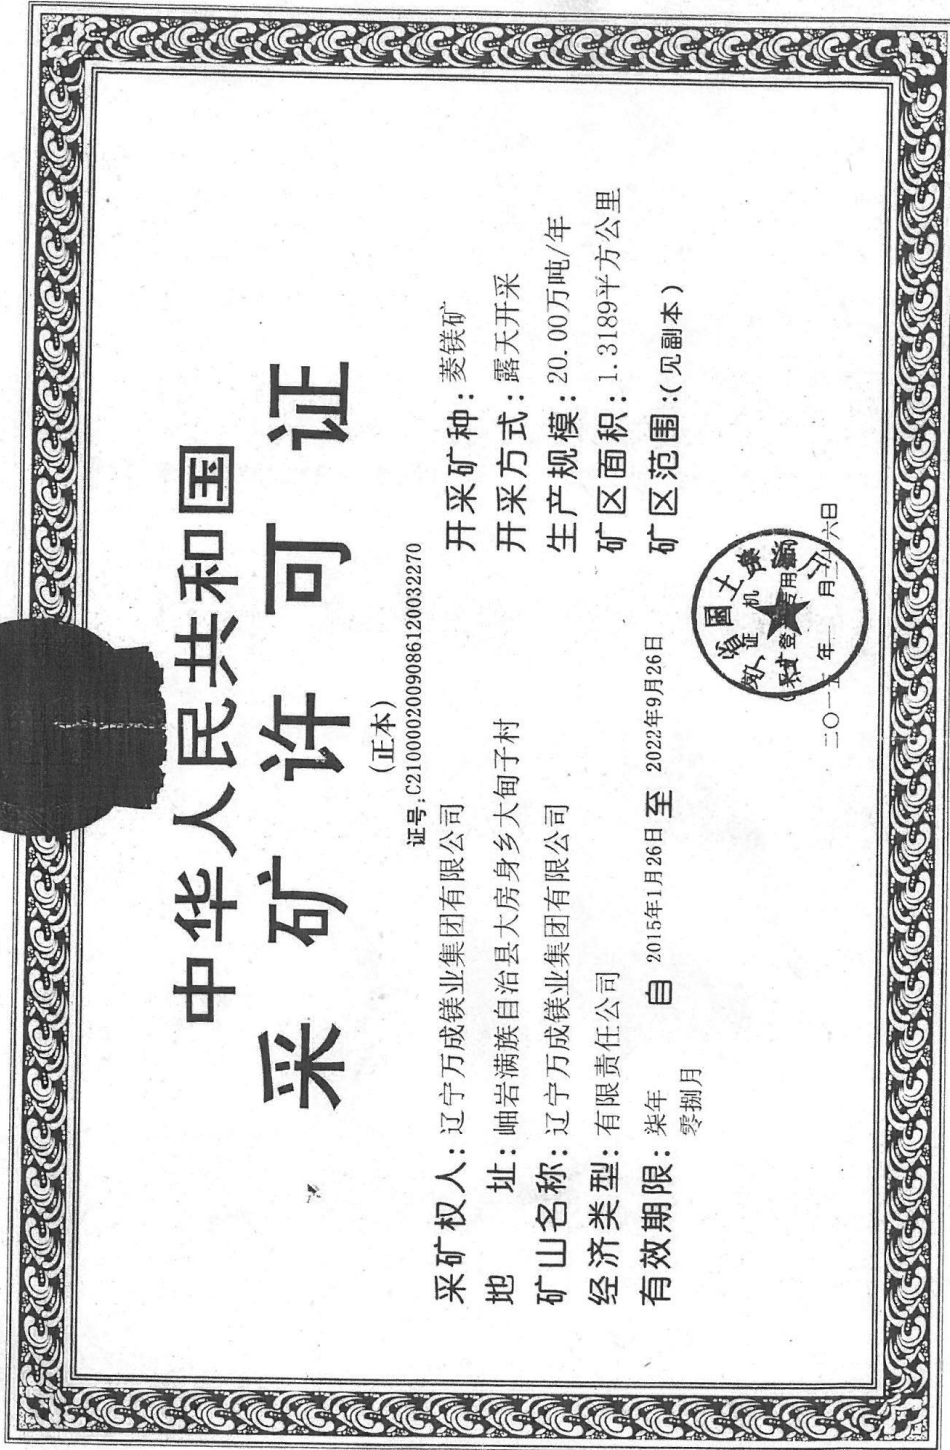 中华人民共和国
采矿许可证
(正本)
证号:C2100002009086120032270
采矿权人: 辽宁万成镁业集团有限公司
地 址: 岫岩满族自治县大房身乡大甸子村
矿山名称: 辽宁万成镁业集团有限公司
经济类型: 有限责任公司
有效期限: 柒年 自 2015年1月26日 至 2022年9月26日
零捌月
开采矿种: 菱镁矿
开采方式: 露天开采
生产规模: 20.00万吨/年
矿区面积: 1.3189平方公里
矿区范围:(见副本)
省国土资源厅
二〇一五年 月 六日